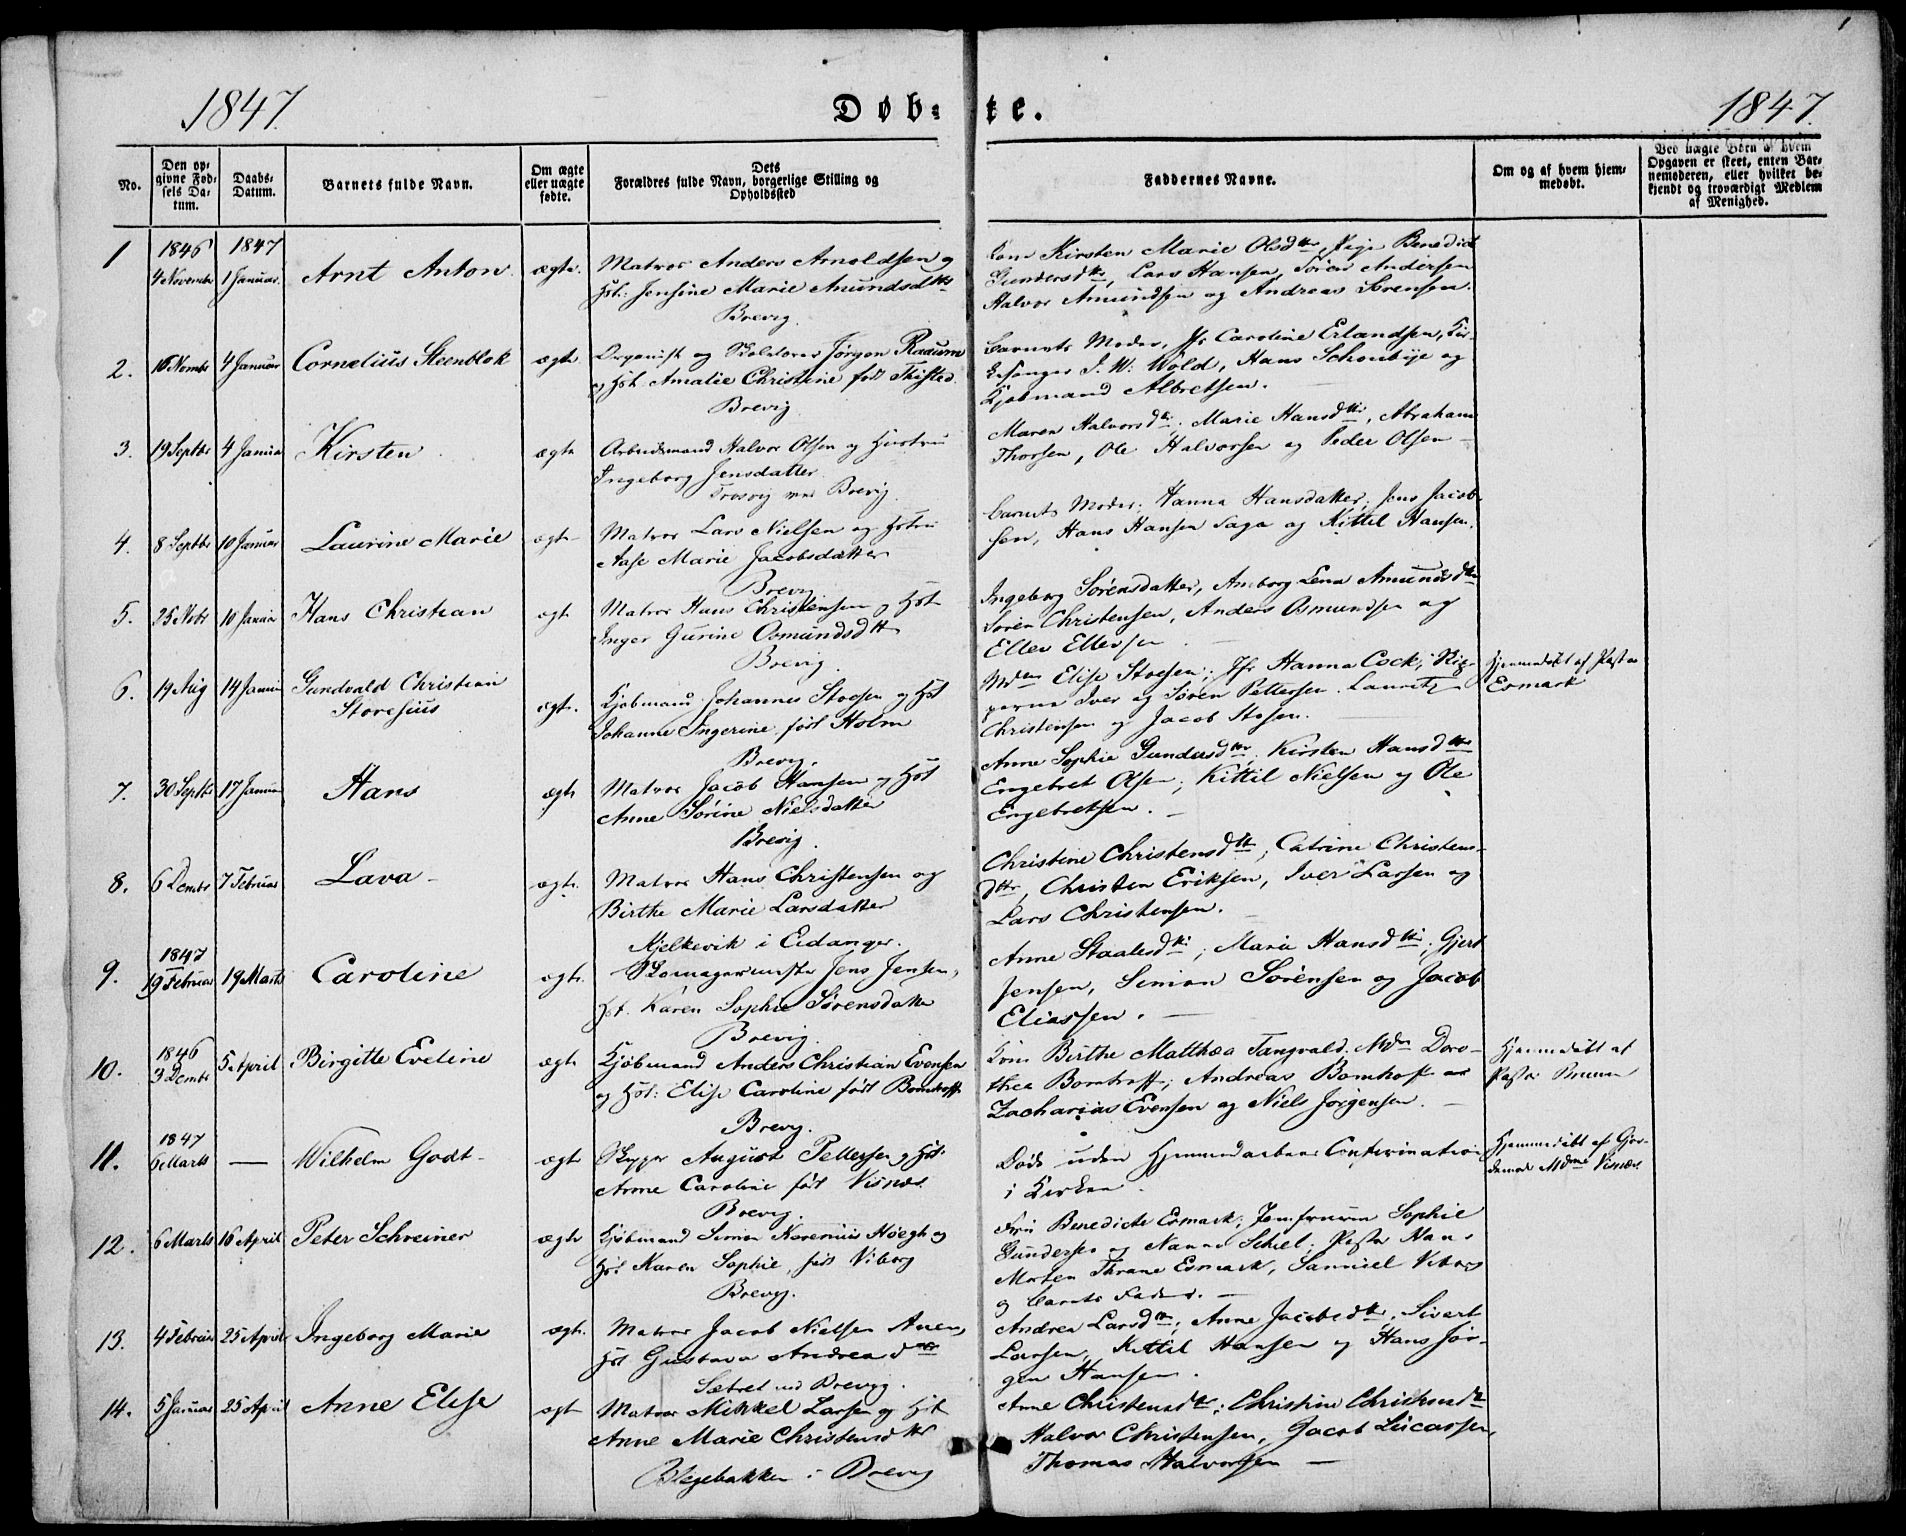 1
1847.
Døb=te.
1847.
No.
Den opgivne Fødsels Datum.
Daabs-Datum.
Barnets fulde Navn.
Om ægte eller uægte fødte.
Dets Forældres fulde Navn, borgerlige Stilling og Opholdssted
Faddernes Navne.
Om og af hvem hjemmedøbt.
Ved uægte Børn af hvem Opgaven er skeet, enten Barnemoderen, eller hvilket bekjendt og troværdigt Medlem af Menighed.
1 1846 4 November 1847 1 Januar Arnt Anton ægte
Matros Anders Arnoldsen og
Hst: Jensine Marie Amundsdtr
Brevig.
Kirsten Marie Olsdtr, Pige Benedict
Gundersdtr, Lars Hansen, Søren Andersen
Halvor Amundsen og Andreas Sørensen.
2. 16 Novmbr 4 Januar Cornelius Steenblok ægte
Organist og Skolelærer Jørgen Raaum
og Hst. Amalie Christine født Thisted.
Brevig
Barnets Moder, Jfr Caroline Erlandsen, Kir-
kesanger J. W. Wold, Hans Schonbye og
Kjøbmand Albretsen.
3. 19 Septbr 4 Januar Kirsten ægte
Arbeidsmand Halvor Olsen og Hustru
Ingeborg Jensdatter
Trosvig ved Brevig.
Maren Halvorsdtr, Marie Hansdtr, Abraham
Thorsen, Ole Halvorsen og Peder Olsen
4. 8 Septbr 10 Januar Laurine Marie ægte
Matros Lars Nielsen og Hstru
Aase Marie Jacobsdatter
Brevig
Barnets Moder, Hanna Hansdatter, Jens Jacob-
sen, Hans Hansen Saga og Kittil Hansen.
5. 25 Novbr 10 Januar Hans Christian ægte
Matros Hans Christensen og Hst
Inger Gurine Osmundsdtr
Brevig.
Ingeborg Sørensdatter, Anborg Lena Amundsdtr
Søren Christensen, Anders Osmundsen og
Ellev Ellevsen
6. 14 Januar Gundvald Christian
Storesius ægte.
Kjøbmand Johannes Stoesen og Hst
Johanne Ingerine født Holm
Brevig.
Mdm Elise Stoesen; Jfr Hanna Cock;
Iver og Søren Pettersen. Lauritz
Christensen og Jacob Stosen.
Hjemmedøbt af Pastor
Esmark
7. 30 Septbr 17 Januar Hans ægte
Matros Jacob Hansen og Hst
Anne Sørine Nielsdatter
Brevig.
Anne Sophie Gundersdtr, Kirsten Hansdtr
Engebret Olsen; Kittil Nielsen og Ole
Engebretsen.
8. 6 Dembr 7 Februar Lava ægte.
Matros Hans Christensen og
Birthe Marie Larsdatter
Kjelkevik i Eidanger.
Christine Christensdtr; Catrine Christens-
dtr, Christen Eriksen, Iver Larsen og
Lars Christensen.
9. 1847 19 Februar 19 Marts Caroline ægte.
Skomagermester Jens Jensen,
Hst. Karen Sophie Sørensdatter
Brevig.
Anne Staalesdtr; Maria Hansdtr; Gjert
Jensen, Simon Sørensen og Jacob
Eliassen.
10. 1846 3 Dembr 5 April Birgitte Eveline ægte
Kjøbmand Anders Christian Evensen
og Hst: Elise Caroline født Bomhoff
Brevig.
Birthe Matthea Tangvald. Mdm Doro-
thea Bomhoff; Andreas Bomhoff
Zacharias Evensen og Niels Jørgensen.
Hjemmedøbt af
Pastor Bruun
11. 1847 6 Marts — Wilhelm Godt ægte
Skipper August Pettersen og Hst.
Anne Caroline født Visnæs
Brevig.
Døde uden Hjemmedaabens Confirmation
i Kirken.
Hjemmedøbt af Gjor-
demor Mdme Visnæs
12. 6 Marts 16 April Peter Schreiner ægte
Kjøbmand Simon Høegh og
Hst Karen Sophie, født Viborg
Brevig.
Fru Benedicte Esmark; Jomfruerne Sophie
Gundersen og Nanna Schiel; Pastor Hans
Morten Thrane Esmark, Samuel Viborg
og Barnets Fader.
13. 4 Februar 25 April Ingeborg Marie ægte.
Matros Jacob Nielsen
Hst Gustava Andreadtr
Sætret ved Brevig.
Andrea Larsdtr; Anne Jacobsdtr, Sivert
Larsen, Kittil Hansen og Hans Jør-
gen Hansen.
14. 5 Januar 25 April Anne Elise ægte
Matros Mikkel Larsen og Hst
Anne Marie Christensdtr
Blegebakken i Brevig
Anne Christensdtr; Christine Christensdtr
Halvor Christensen, Jacob Lucassen,
Thomas Halvorsen